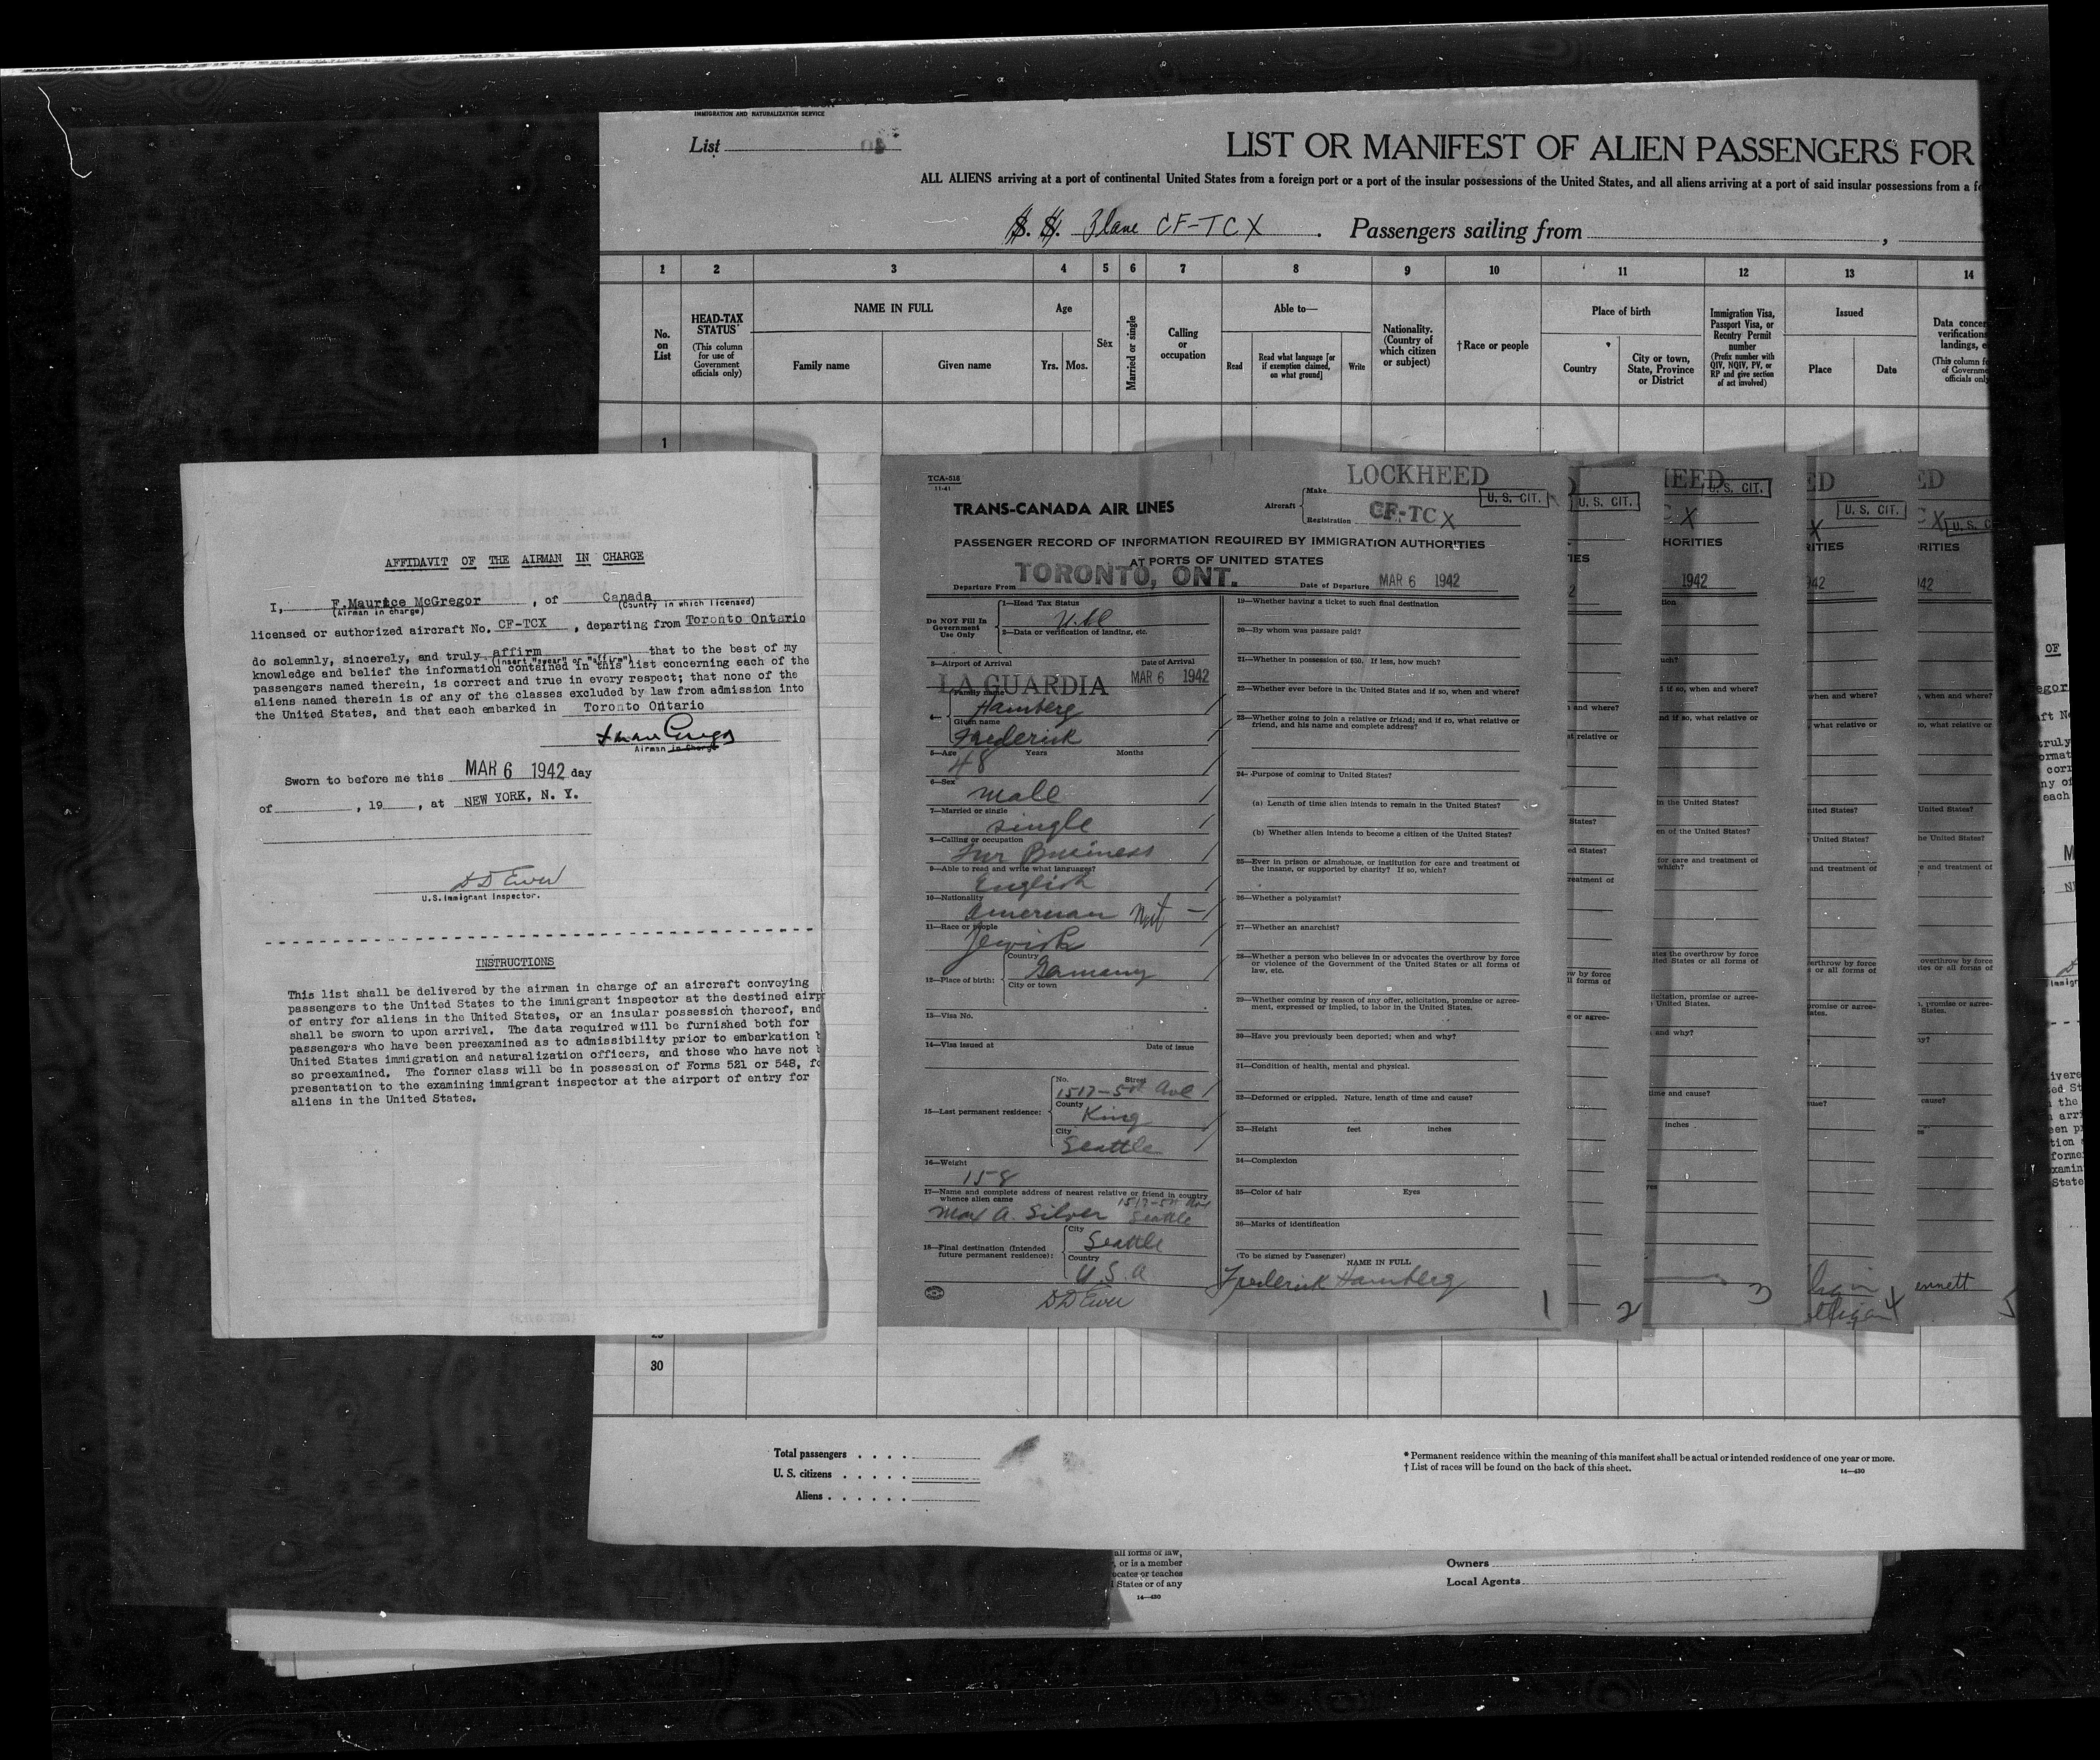 IMMIGRATION AND NATURALIZATION SERVICE
List
LIST OR MANIFEST OF ALIEN PASSENGERS FOR
ALL ALIENS arriving at a port of continental United States from a foreign port or a port of the insular possessions of the United States, and all aliens arriving at a port of said insular possessions from a
S. S. Plane CF-TCX. Passengers sailing from ,
1 2 3 4 5 6 7 8 9 10 11 12 13 14
No. on List
HEAD-TAX STATUS
(This column for use of Government officials only)
NAME IN FULL
Family name
Given name
Age
Yrs. Mos.
Sex
Married or single
Calling or occupation
Able to—
Read
Read what language [or if exemption claimed, on what ground]
Write
Nationality. (Country of which citizen or subject)
†Race or people
Place of birth
Country
City or town, State, Province or District
Immigration Visa, Passport Visa, or Reentry Permit number
(Prefix number with QIV, NQIV, PV, or RP and give section of act involved)
Issued
Place
Date
Data concer
verifications
landings, e
(This column f
of Governme
officials only
1
AFFIDAVIT OF THE AIRMAN IN CHARGE
I, F.Maurice McGregor , of Canada
(Airman in charge) (Country in which licensed)
licensed or authorized aircraft No. CF-TCX , departing from Toronto Ontario
do solemnly, sincerely, and truly affirm that to the best of my
(Insert "swear" or "affirm")
knowledge and belief the information contained in this list concerning each of the
passengers named therein, is correct and true in every respect; that none of the
aliens named therein is of any of the classes excluded by law from admission into
the United States, and that each embarked in Toronto Ontario
Airman in Charge
Sworn to before me this MAR 6 1942 day
of , 19 , at NEW YORK, N. Y.
D D Ewer
U.S. Immigrant Inspector.
INSTRUCTIONS
This list shall be delivered by the airman in charge of an aircraft convoying
passengers to the United States to the immigrant inspector at the destined airp
of entry for aliens in the United States, or an insular possession thereof, and
shall be sworn to upon arrival. The data required will be furnished both for
passengers who have been preexamined as to admissibility prior to embarkation b
United States immigration and naturalization officers, and those who have not b
so preexamined. The former class will be in possession of Forms 521 or 548, fo
presentation to the examining immigrant inspector at the airport of entry for
aliens in the United States.
TCA-518
11-41
TRANS-CANADA AIR LINES
Aircraft
Make LOCKHEED
Registration CF-TCX
U. S. CIT.
PASSENGER RECORD OF INFORMATION REQUIRED BY IMMIGRATION AUTHORITIES
AT PORTS OF UNITED STATES
Departure From TORONTO, ONT. Date of Departure MAR 6 1942
Do NOT Fill In Government Use Only
1—Head Tax Status
2—Data or verification of landing, etc.
3—Airport of Arrival Date of Arrival
LA GUARDIA MAR 6 1942
4— Family name
Hamberg
Given name
Frederick
5—Age Years Months
48
6—Sex
male
7—Married or single
single
8—Calling or occupation
Fur Business
9—Able to read and write what languages?
English
10—Nationality
American Nat
11—Race or people
Jewish
12—Place of birth: Country
Germany
City or town
13—Visa No.
14—Visa issued at Date of issue
15—Last permanent residence:
No. Street
1517-5th Ave
County
King
City
Seattle
16—Weight
158
17—Name and complete address of nearest relative or friend in country
whence alien came
Max A. Silver 1517-5th Ave Seattle
18—Final destination (Intended future permanent residence):
City
Seattle
Country
U.S.A
D D Ewer
19—Whether having a ticket to such final destination
20—By whom was passage paid?
21—Whether in possession of $50. If less, how much?
22—Whether ever before in the United States and if so, when and where?
23—Whether going to join a relative or friend; and if so, what relative or
friend, and his name and complete address?
24—Purpose of coming to United States?
(a) Length of time alien intends to remain in the United States?
(b) Whether alien intends to become a citizen of the United States?
25—Ever in prison or almshouse, or institution for care and treatment of
the insane, or supported by charity? If so, which?
26—Whether a polygamist?
27—Whether an anarchist?
28—Whether a person who believes in or advocates the overthrow by force
or violence of the Government of the United States or all forms of
law, etc.
29—Whether coming by reason of any offer, solicitation, promise or agree-
ment, expressed or implied, to labor in the United States.
30—Have you previously been deported; when and why?
31—Condition of health, mental and physical.
32—Deformed or crippled. Nature, length of time and cause?
33—Height feet inches
34—Complexion
35—Color of hair Eyes
36—Marks of identification
(To be signed by Passenger) NAME IN FULL
Frederick Hamberg
1
U. S. CIT.
2
U. S. CIT.
HORITIES
1942
3
U. S. CIT.
4
ennett
5
30
Total passengers . . . .
U. S. citizens . . . . .
Aliens . . . . . .
* Permanent residence within the meaning of this manifest shall be actual or intended residence of one year or more.
† List of races will be found on the back of this sheet.
14—430
all forms of law,
, or is a member
ocates or teaches
States or of any
14—430
Owners
Local Agents